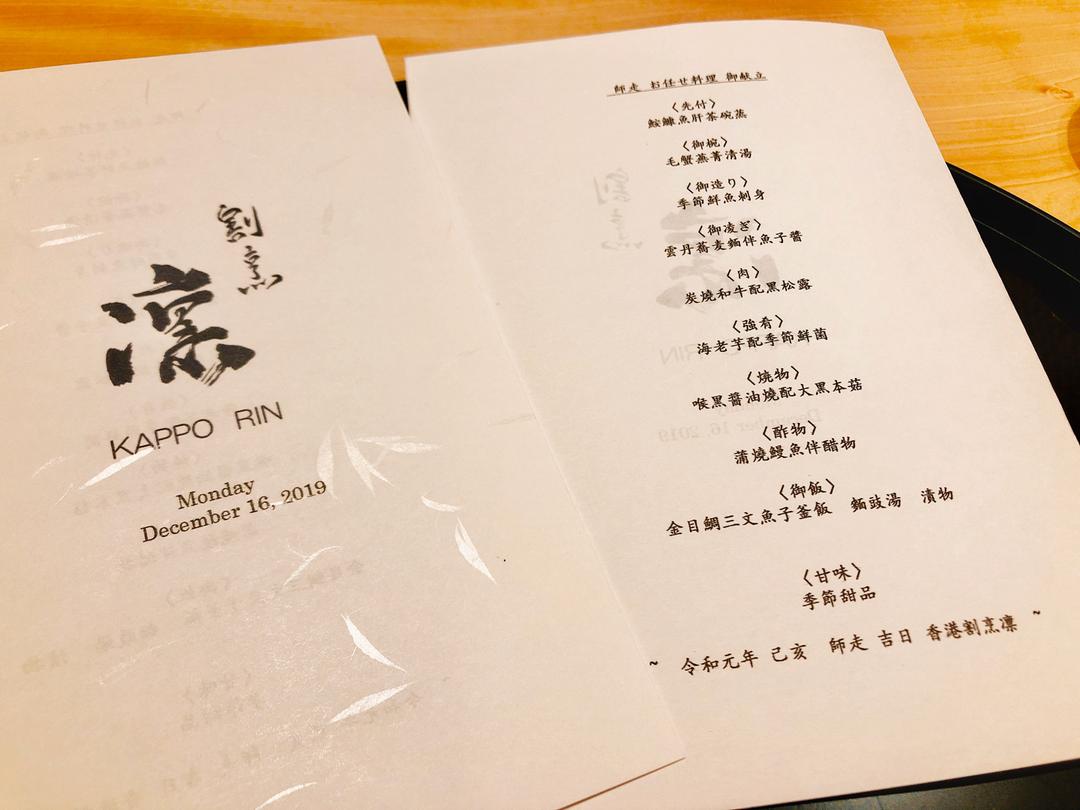 割烹
凛
KAPPO RIN
Monday
December 16, 2019
師走 お任せ料理 御献立
〈先付〉
鮟鱇魚肝茶碗蒸
〈御椀〉
毛蟹蕪菁清湯
〈御造り〉
季節鮮魚刺身
〈御凌ぎ〉
雲丹蕎麦麺伴魚子醬
〈肉〉
炭燒和牛配黑松露
〈強肴〉
海老芋配季節鮮菌
〈燒物〉
喉黑醬油燒配大黑本菇
〈酢物〉
蒲燒鰻魚伴醋物
〈御飯〉
金目鯛三文魚子釜飯 麵豉湯 漬物
〈甘味〉
季節甜品
~ 令和元年 己亥 師走 吉日 香港割烹凛 ~